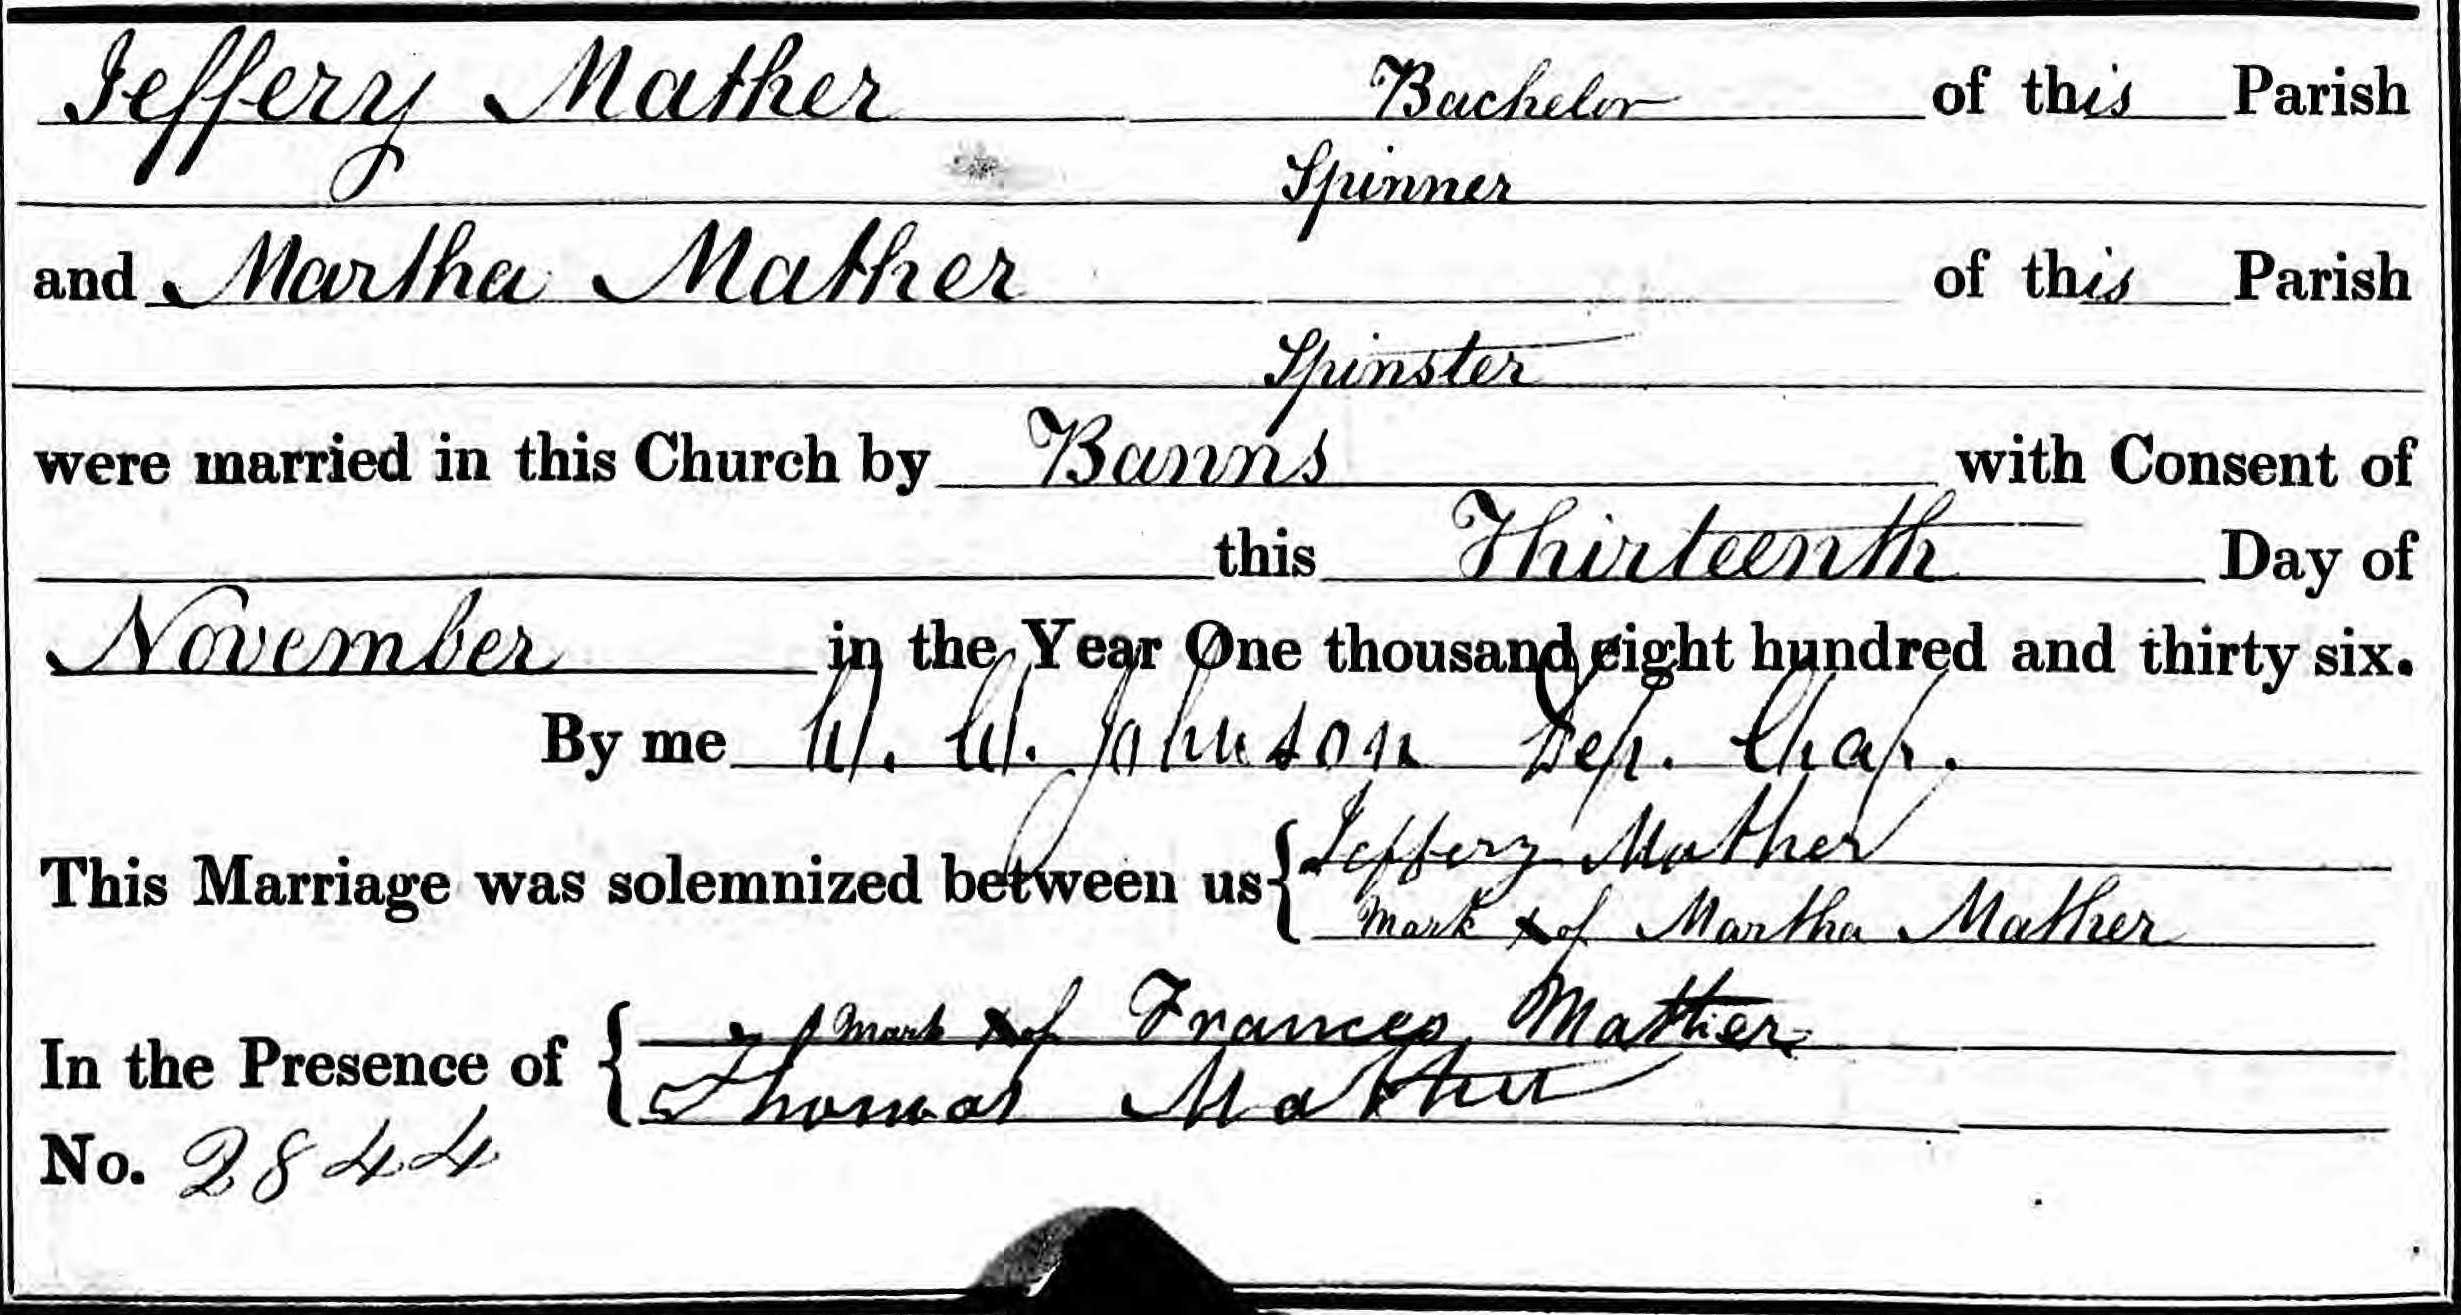 Jeffery Mather Bachelor of this Parish
Spinner
and Martha Mather of this Parish
Spinster
were married in this Church by Banns with Consent of
this Thirteenth Day of
November in the Year One thousand eight hundred and thirty six.
By me W. W. Johnson Dep. Chap.
This Marriage was solemnized between us { Jeffery Mather
Mark x of Martha Mather
In the Presence of { Mark x of Frances Mather
Thomas Mather
No. 2844